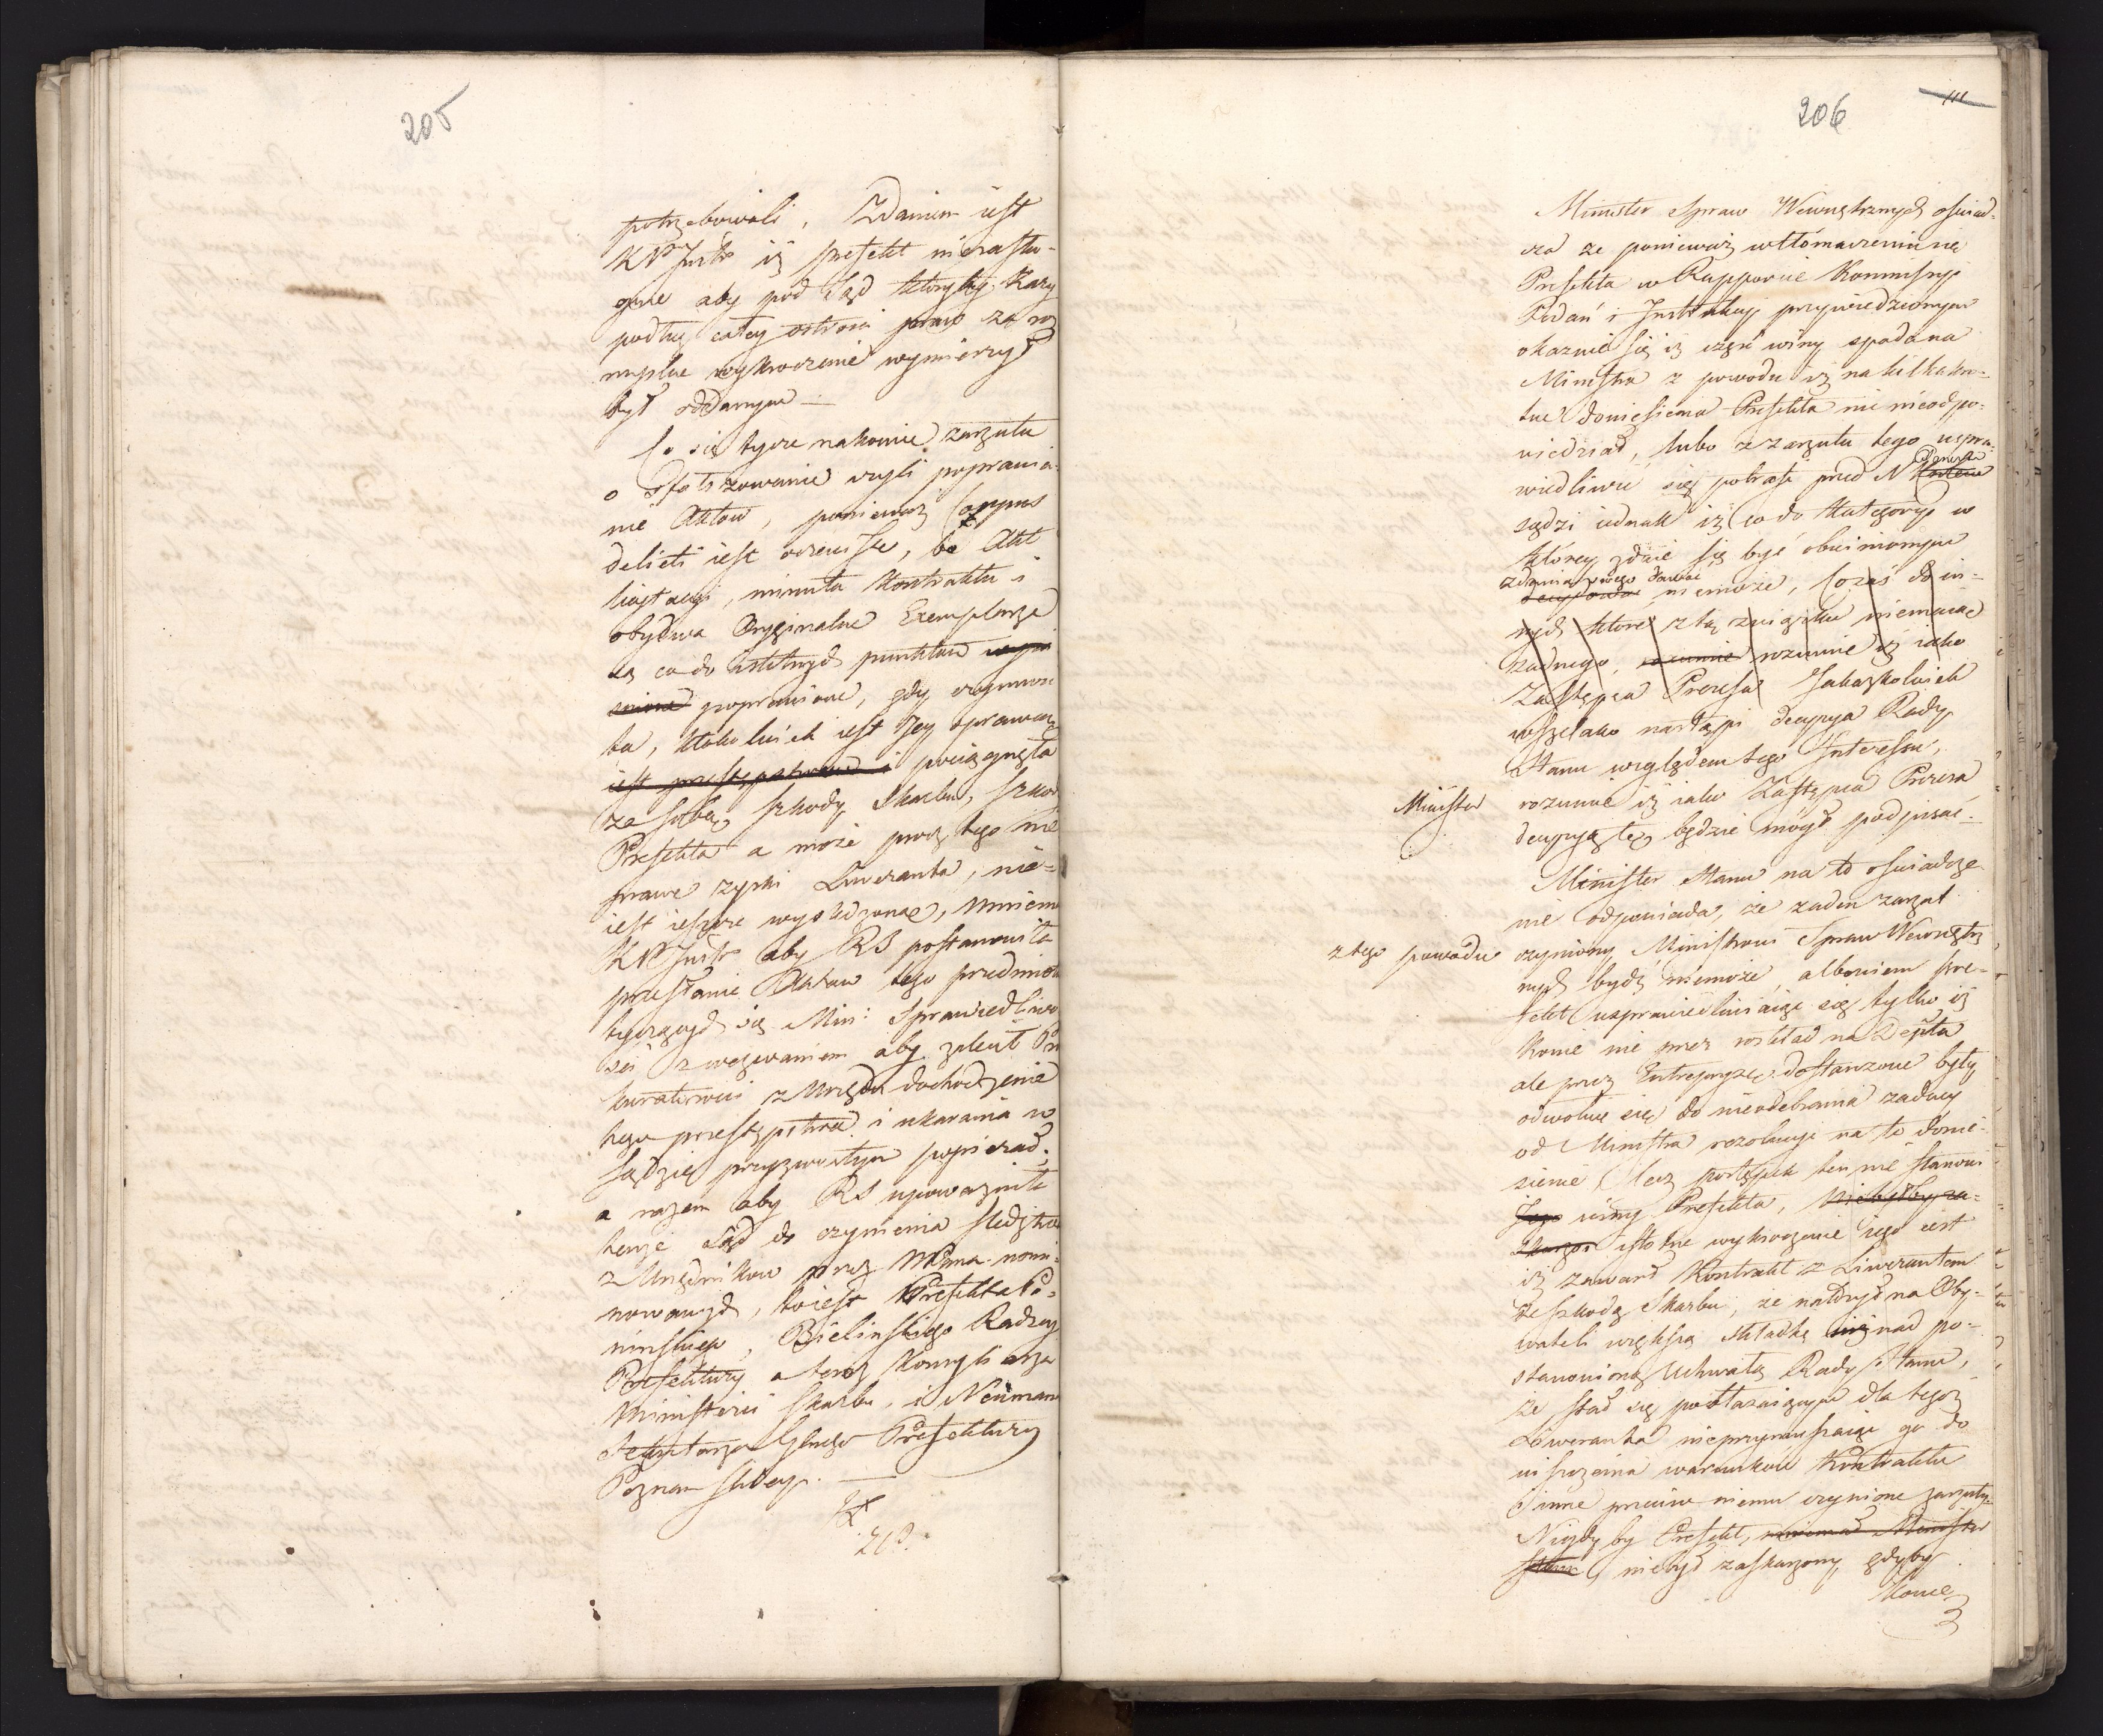 205
potrzebowali. Zdaniem iest
KPJnstr iż prefekt niezasłu-
guie aby pod Sąd któryby Karę
podług całey ostrości praw za
wykroczenie wymierzył
był oddanym —
Co się tycze nakoniec zarzutu
o sfałszowanie czyli poprawie
nie Aktow, ponieważ Corpus
delicti iest oczewiste, bo Akt
licytacyi, minuta Kontraktu i
obydwa Oryginalne Exemplarze
są co do istotnych punktow
poprawione, gdy czynność
ta, ktokolwiek iest Jey sprawcą
iest przestępstwem i pociągnęła
za sobą szkodę Skarbu,
Prefekta a może przez tego nie
prawe zyski Liweranta, nie-
iest ieszcze wyśledzone, mniema
KPJnstr aby RS postanowiła
przesłanie Aktow tego przedmiotu
tyczących się Min: Sprawiedliwo
ści z wezwaniem aby zlecił Pro
kuratorowi z Urzędu dochodzenie
tego przestępstwa i ukarania w
Sądzie przyzwoitym popierać;
a razem aby RS upoważniła
tenże Sąd do czynienia śledztwa
z Urzędnikow przez NPana nomi-
nowanych, to iest Prefekta Po-
nińskiego, Bielinskiego Radzcy
Prefektury a teraz Konsyliarza
Ministerii Skarbu, i Neumann
Sekretarza Glnego Prefektury
Poznanskiey. —
206
111
Minister Spraw Wewnętrznych oświad-
cza ze ponieważ w tłómaczeniu się
Prefekta w Rapporcie Kommissyi
Podań i Jnstrukcyi przywiedzionym
okazuie się iż część winy spada na
Ministra z powodu iż na kilkakro-
tne doniesienia Prefekta nic nieodpo-
wiedział, lubo z zarzutu tego uspra-
wiedliwić się potrafi przed N Panem
sądzi iednak iż co do Kategoryi w
którey zdaie się być obwinionym
zdania swego dawać
decydować niemoże, Co zaś do in-
nych które z tą związku niemaią
żadnego, rozumie rozumie iż iako
Zastępca Prezesa Jakażkolwiek
wszelako nastąpi decyzya Rady
Stanu względem tego Jnteressu,
Minister rozumie iż iako Zastępca Prezesa
decyzyą tę będzie mógł podpisać.
Minister Stanu na to oświadcze
nie odpowiada, że żaden zarzut
z tego powodu czyniony Ministrowi Spraw Wewnętrz
nych bydź niemoże, albowiem Pre-
fekt usprawiedliwiaiąc się tylko iż
konie nie przez rozkład na Depta
ale przez Entrepryzę dostarczone były
odwołuie się do nieodebrania żadney
od Ministra rezolucyi na te donie-
sienie, lecz postępek ten nie stanowi
Jego winy Prefekta, niebyłby za-
skarżon istotne wykroczenie iego iest
iż zawarł Kontrakt z Liwerantem
ze szkodą Skarbu, że nałożył na Oby-
wateli większą składkę niż nad po-
stanowioną Uchwałą Rady Stanu,
że stał się pobłażaiącym dla tegoż
Liweranta nieprzymuszaiąc go do
uiszczenia warunków Kontraktu
i inne przeciw niemu czynione zarzuty.
Nigdy by Prefekt, mniemał Minister
Stanu, niebył zaskarżony, gdyby
Konie